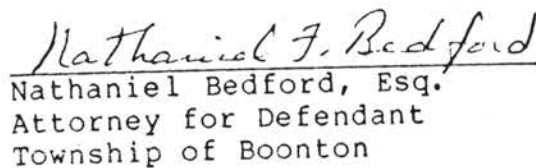 Nathaniel F. Bedford
Nathaniel Bedford, Esq.
Attorney for Defendant
Township of Boonton